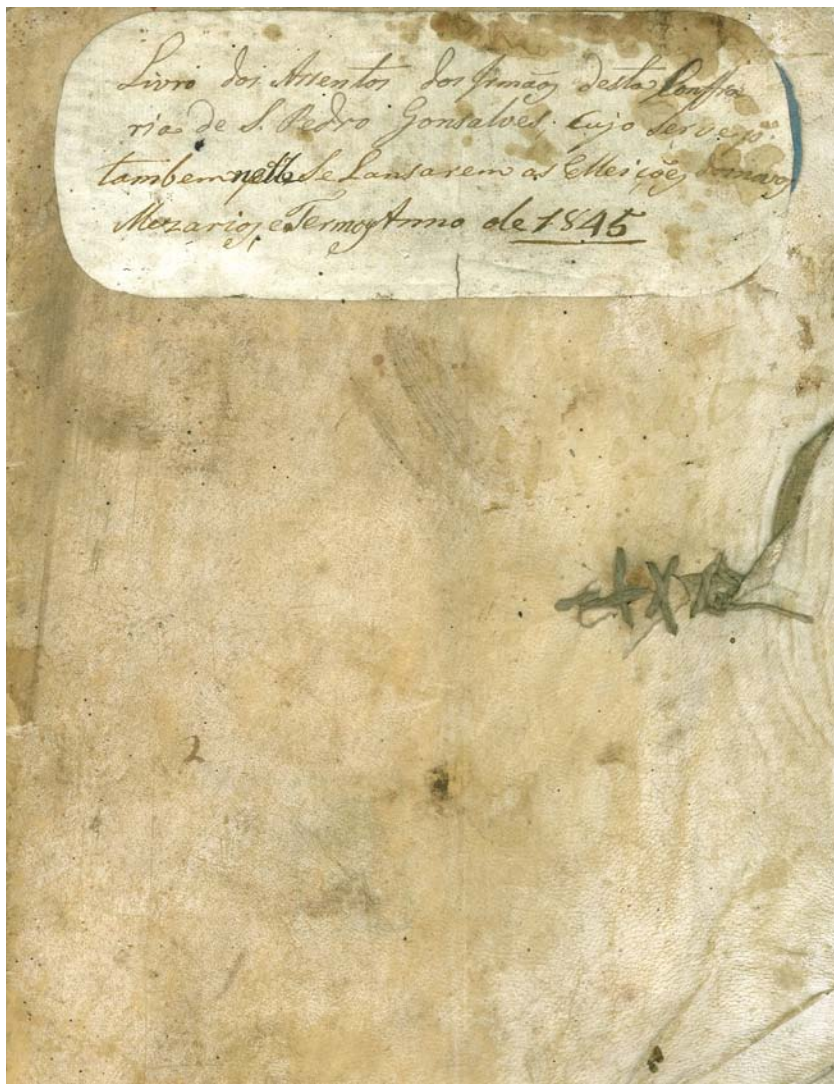 Livro dos Assentos dos Irmãos desta Confra
ria de S. Pedro Gonsalves. Cujo serve pª.
tambem nelle Se Lansarem as Elleições
Mezarios, e Termos Anno de 1845
2